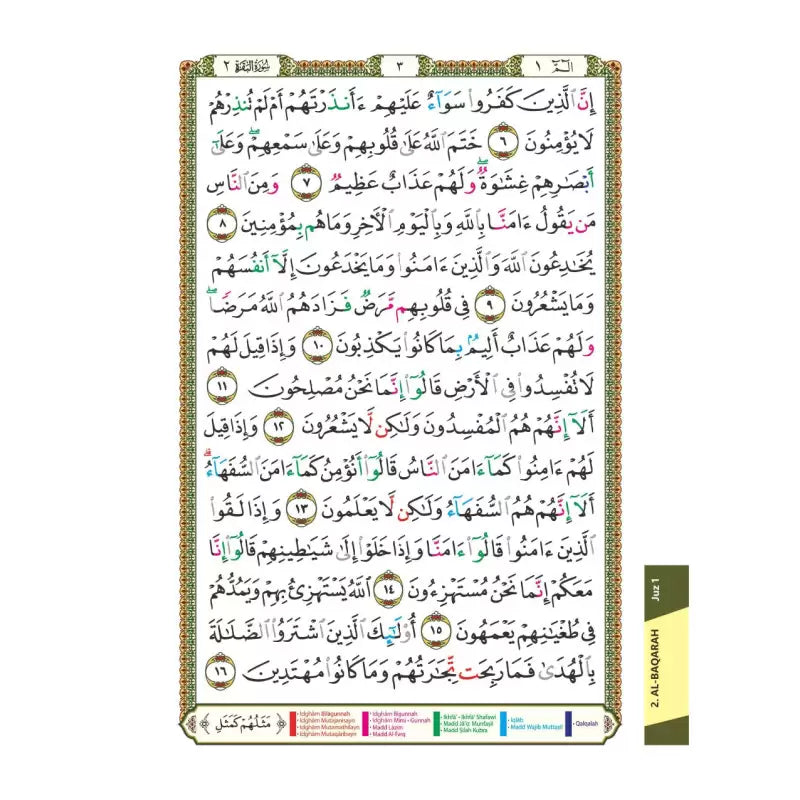 الٓمٓ ١
٣
سُورَةُ البَقَرَةِ ٢
إِنَّ ٱلَّذِينَ كَفَرُوا۟ سَوَآءٌ عَلَيْهِمْ ءَأَنذَرْتَهُمْ أَمْ لَمْ تُنذِرْهُمْ
لَا يُؤْمِنُونَ ٦ خَتَمَ ٱللَّهُ عَلَىٰ قُلُوبِهِمْ وَعَلَىٰ سَمْعِهِمْ ۖ وَعَلَىٰٓ
أَبْصَـٰرِهِمْ غِشَـٰوَةٌ ۖ وَلَهُمْ عَذَابٌ عَظِيمٌ ٧ وَمِنَ ٱلنَّاسِ
مَن يَقُولُ ءَامَنَّا بِٱللَّهِ وَبِٱلْيَوْمِ ٱلْـَٔاخِرِ وَمَا هُم بِمُؤْمِنِينَ ٨
يُخَـٰدِعُونَ ٱللَّهَ وَٱلَّذِينَ ءَامَنُوا۟ وَمَا يَخْدَعُونَ إِلَّآ أَنفُسَهُمْ
وَمَا يَشْعُرُونَ ٩ فِى قُلُوبِهِم مَّرَضٌ فَزَادَهُمُ ٱللَّهُ مَرَضًا ۖ
وَلَهُمْ عَذَابٌ أَلِيمٌۢ بِمَا كَانُوا۟ يَكْذِبُونَ ١٠ وَإِذَا قِيلَ لَهُمْ
لَا تُفْسِدُوا۟ فِى ٱلْأَرْضِ قَالُوٓا۟ إِنَّمَا نَحْنُ مُصْلِحُونَ ١١
أَلَآ إِنَّهُمْ هُمُ ٱلْمُفْسِدُونَ وَلَـٰكِن لَّا يَشْعُرُونَ ١٢ وَإِذَا قِيلَ
لَهُمْ ءَامِنُوا۟ كَمَآ ءَامَنَ ٱلنَّاسُ قَالُوٓا۟ أَنُؤْمِنُ كَمَآ ءَامَنَ ٱلسُّفَهَآءُ ۗ
أَلَآ إِنَّهُمْ هُمُ ٱلسُّفَهَآءُ وَلَـٰكِن لَّا يَعْلَمُونَ ١٣ وَإِذَا لَقُوا۟
ٱلَّذِينَ ءَامَنُوا۟ قَالُوٓا۟ ءَامَنَّا وَإِذَا خَلَوْا۟ إِلَىٰ شَيَـٰطِينِهِمْ قَالُوٓا۟ إِنَّا
مَعَكُمْ إِنَّمَا نَحْنُ مُسْتَهْزِءُونَ ١٤ ٱللَّهُ يَسْتَهْزِئُ بِهِمْ وَيَمُدُّهُمْ
فِى طُغْيَـٰنِهِمْ يَعْمَهُونَ ١٥ أُو۟لَـٰٓئِكَ ٱلَّذِينَ ٱشْتَرَوُا۟ ٱلضَّلَـٰلَةَ
بِٱلْهُدَىٰ فَمَا رَبِحَت تِّجَـٰرَتُهُمْ وَمَا كَانُوا۟ مُهْتَدِينَ ١٦
مَثَلُهُمْ كَمَثَلِ
• Idghām Bilāgunnah
• Idghām Mutajānisayn
• Idghām Mutamāthilayn
• Idghām Mutaqāribayn
• Idghām Bigunnah
• Idghām Mimi - Gunnah
• Madd Lāzim
• Madd Al-Farq
• Ikhfā' - Ikhfā' Shafawī
• Madd Jā'iz Munfaṣil
• Madd Ṣilah Kubra
• Iqlāb
• Madd Wājib Muttaṣil
• Qalqalah
2. AL-BAQARAH
Juz 1